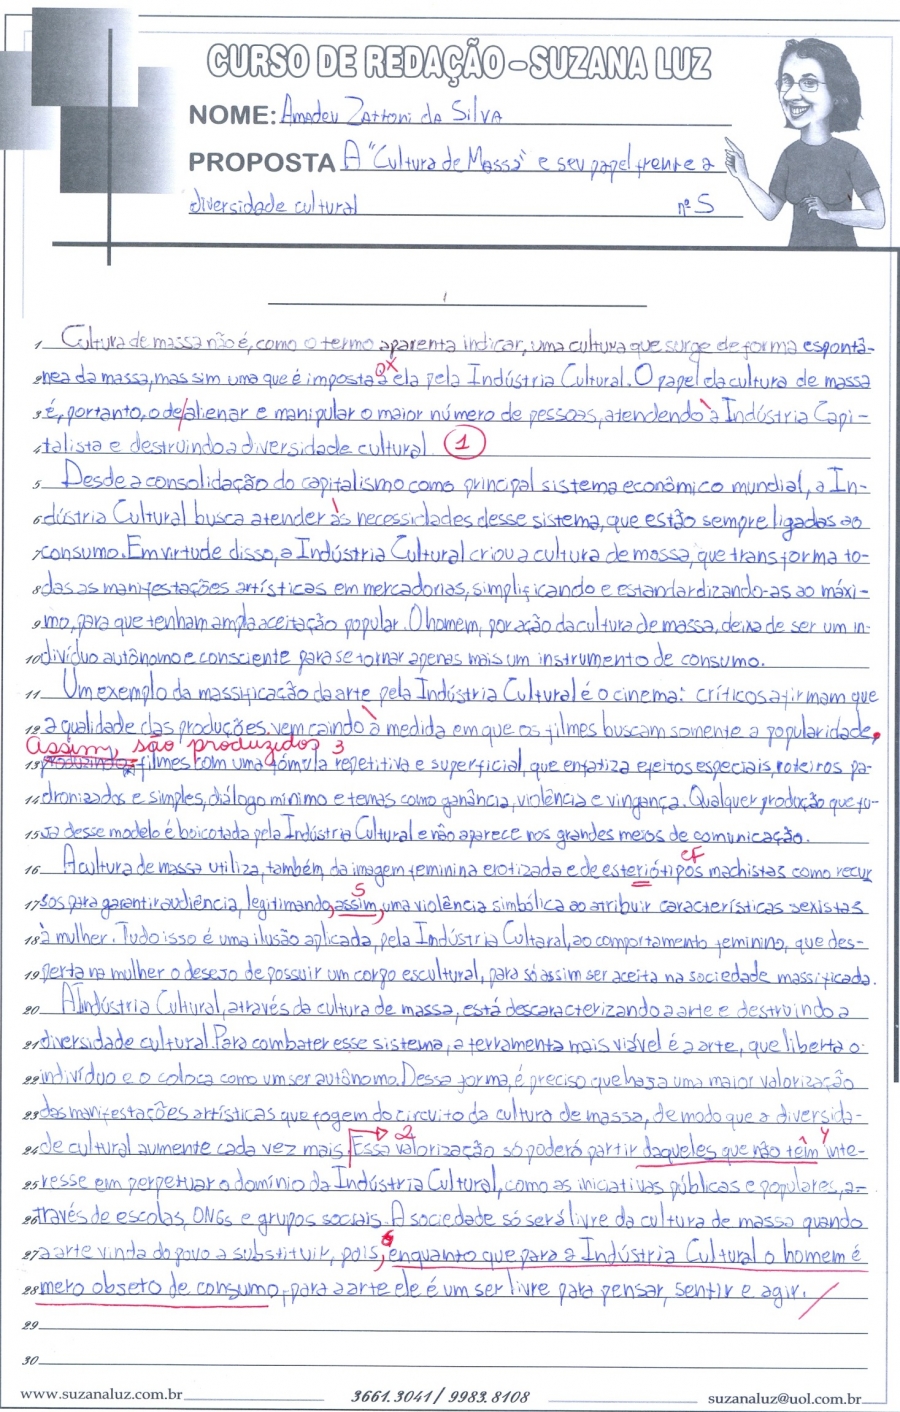 CURSO DE REDAÇÃO - SUZANA LUZ
NOME: Amadeu Zattoni da Silva
PROPOSTA A "Cultura de Massa" e seu papel frente a
diversidade cultural nº 5
1 Cultura de massa não é, como o termo aparenta indicar, uma cultura que surge de forma espontâ-
2 nea da massa, mas sim uma que é imposta a ela pela Indústria Cultural. O papel da cultura de massa
3 é, portanto, o de alienar e manipular o maior número de pessoas, atendendo à Indústria Capi-
4 talista e destruindo a diversidade cultural. 1
5 Desde a consolidação do capitalismo como principal sistema econômico mundial, a In-
6 dústria Cultural busca atender às necessidades desse sistema, que estão sempre ligadas ao
7 consumo. Em virtude disso, a Indústria Cultural criou a cultura de massa, que transforma to-
8 das as manifestações artísticas em mercadorias, simplificando e estandardizando-as ao máxi-
9 mo, para que tenham ampla aceitação popular. O homem, por ação da cultura de massa, deixa de ser um in-
10 divíduo autônomo e consciente para se tornar apenas mais um instrumento de consumo.
11 Um exemplo da massificação da arte pela Indústria Cultural é o cinema: críticos afirmam que
12 a qualidade das produções vem caindo à medida em que os filmes buscam somente a popularidade,
Assim, são produzidos 3
13 produzindo filmes com uma fómula repetitiva e superficial, que enfatiza efeitos especiais, roteiros pa-
14 dronizados e simples, diálogo mínimo e temas como ganância, violência e vingança. Qualquer produção que fu-
15 ja desse modelo é boicotada pela Indústria Cultural e não aparece nos grandes meios de comunicação.
16 A cultura de massa utiliza, também, da imagem feminina erotizada e de esteriótipos machistas como recur
17 sos para garantir audiência, legitimando, assim, uma violência simbólica ao atribuir características sexistas
5
18 à mulher. Tudo isso é uma ilusão aplicada, pela Indústria Cultural, ao comportamento feminino, que des-
19 perta na mulher o desejo de possuir um corpo escultural, para só assim ser aceita na sociedade massificada.
20 A Indústria Cultural, através da cultura de massa, está descaracterizando a arte e destruindo a
21 diversidade cultural. Para combater esse sistema, a ferramenta mais viável é a arte, que liberta o
22 indivíduo e o coloca como um ser autônomo. Dessa forma, é preciso que haja uma maior valorização
23 das manifestações artísticas que fogem do circuito da cultura de massa, de modo que a diversida-
2
24 de cultural aumente cada vez mais. Essa valorização só poderá partir daqueles que não têm inte-
25 resse em perpetuar o domínio da Indústria Cultural, como as iniciativas públicas e populares, a-
26 través de escolas, ONGs e grupos sociais. A sociedade só será livre da cultura de massa quando
27 a arte vinda do povo a substituir, pois, enquanto que para a Indústria Cultural o homem é
28 mero obseto de consumo, para a arte ele é um ser livre para pensar, sentir e agir.
29
30
www.suzanaluz.com.br 3661.3041 / 9983.8108 suzanaluz@uol.com.br